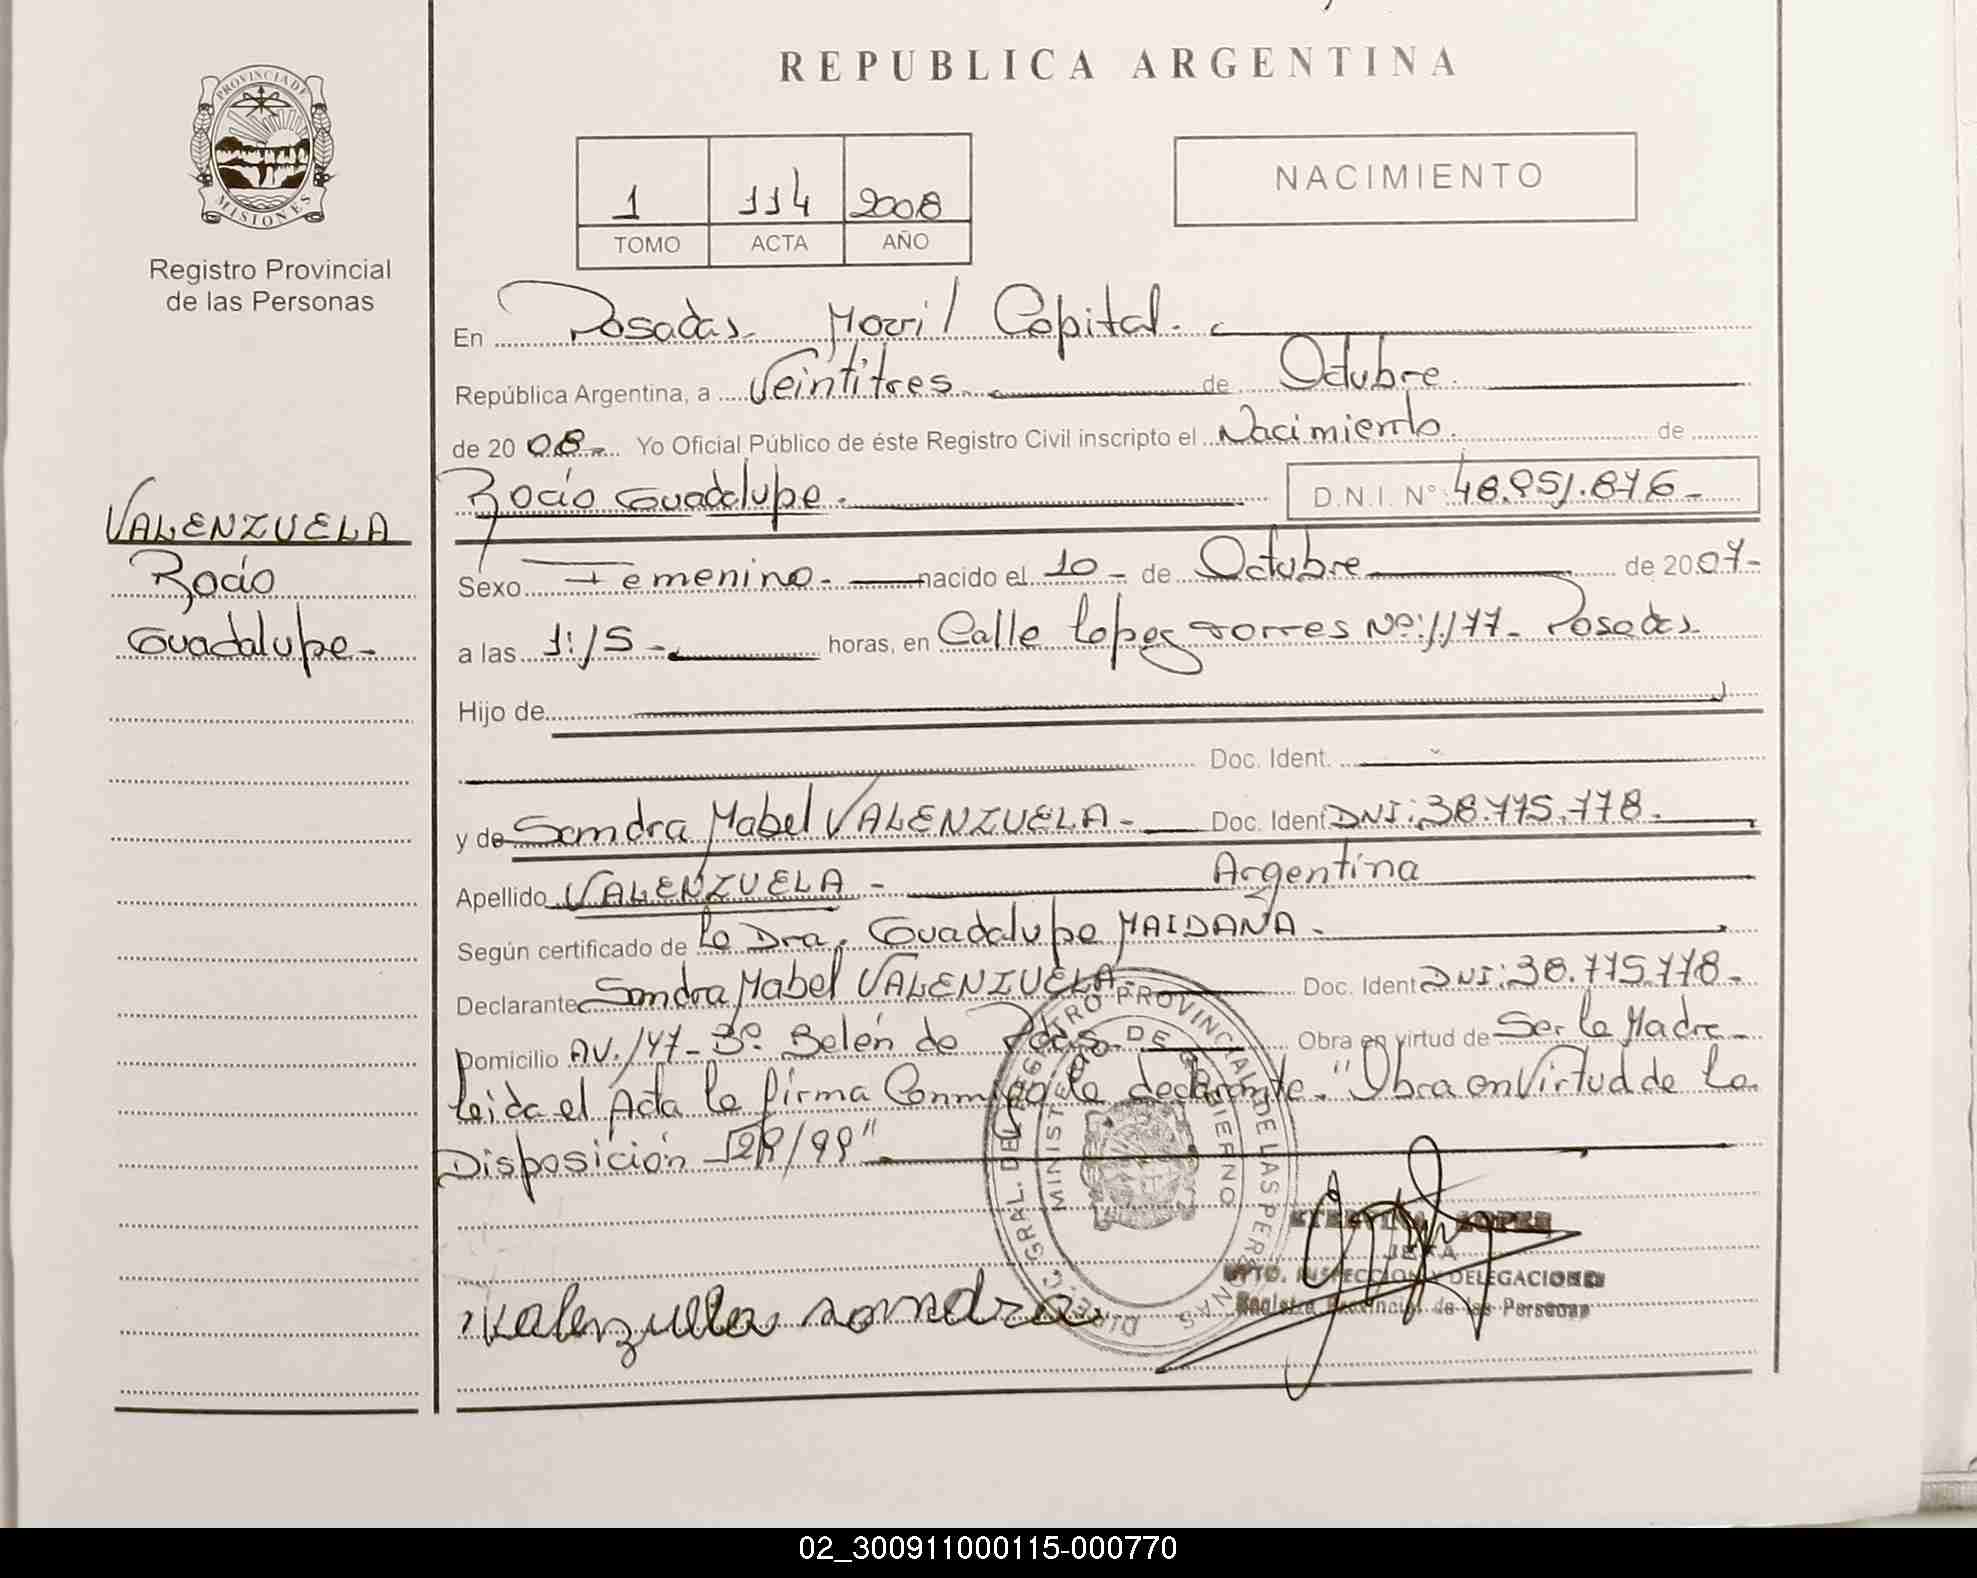 REPUBLICA ARGENTINA
PROVINCIA DE
MISIONES
Registro Provincial
de las Personas
1 114 2008
TOMO ACTA AÑO
NACIMIENTO
En Posadas. Movil Capital.
República Argentina, a Veintitres. de Octubre.
de 20 08. Yo Oficial Público de éste Registro Civil inscripto el Nacimiento. de
Rocío Guadalupe. D.N.I. Nº 48.951.876-
VALENZUELA
Rocío
Guadalupe-
Sexo Femenino. nacido el 10- de Octubre de 20 07-
a las 1:15- horas, en Calle Lopez Torres Nº:1177- Posadas.
Hijo de
Doc. Ident.
y de Sandra Mabel VALENZUELA- Doc. Ident DNI:38.775.778.
Apellido VALENZUELA - Argentina
Según certificado de la Dra. Guadalupe MAIDANA.
Declarante Sandra Mabel VALENZUELA. Doc. Ident DNI:38.775.778-
Domicilio AV. 147- Bº. Belén de Pdas. Obra en virtud de Ser la Madre-
Leida el Acta la firma Conmigo la declarante. "Obra en Virtud de la
Disposición 129/99"
DIREC. GRAL. DEL REGISTRO PROVINCIAL DE LAS PERSONAS
MINISTERIO DE GOBIERNO
LOPEZ
JEFA
DPTO. INSPECCION Y DELEGACIONES
Registro Provincial de las Personas
Valenzuela sandra
02_300911000115-000770